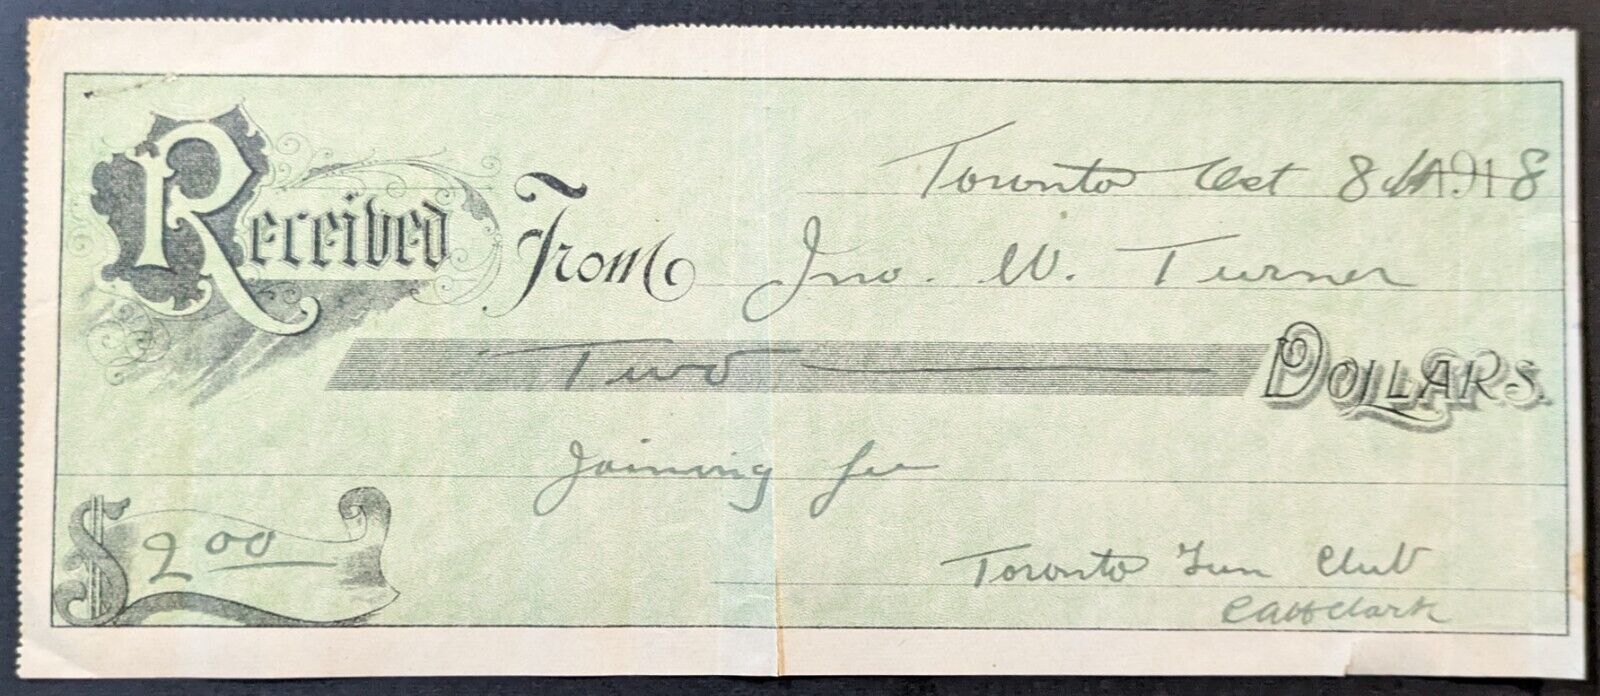 Toronto Oct 8th 1918
Received From Jno. W. Turner
Two Dollars.
Joining fee
$2.00
Toronto Gun Club